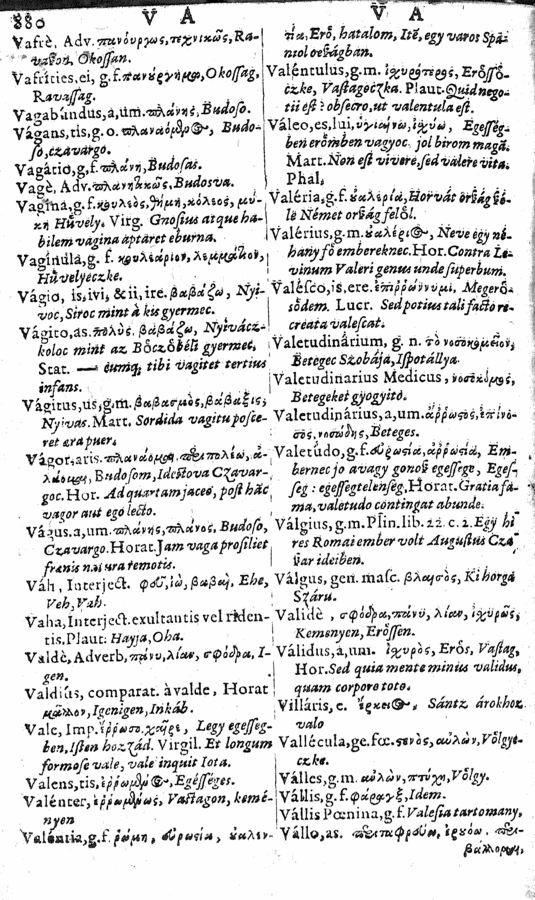 880 V A
Vafrè, Adv. πανούργως, τεχνικῶς, Ra-
vaſon, Okoſſan.
Vafrities, ei, g.f. πανούργημα, Okoſſag,
Ravaſſag.
Vagabúndus, a, um. πλάνης, Budoſo.
Vágans, tis, g.o. Budo-
ſo, czavargo.
Vagátio, g.f. πλανή, Budoſas.
Vagè, Adv. Budosva.
Vagína, g.f. κουλεὸς, θήκη, κόλεος, μύ-
κη Hüvely. Virg. Gnoſius atque ha-
bilem vagina aptaret eburna.
Vagínula, g. f. κουλεάριον,
Hüvelyeczke.
Vágio, is, ivi, & ii, ire. βαβάζω, Nyi-
voc, Siroc mint à kis gyermec.
Vágito, as. βαβάζω, Nyivácz-
koloc mint az Bőczőbéli gyermec,
Stat. — eumq; tibi vagitet tertius
infans.
Vágitus, us, g.m. βαβασμὸς, βάβαξις,
Nyivas. Mart. Sordida vagitu poſce-
ret æra puer.
Vágor, aris. πλανάομαι, περιπολέω, ἀ-
λάομαι, Budoſom, Idestova Czavar-
goc. Hor. Ad quartam jaceo, poſt hāc
vagor aut ego lecto.
Vágus, a, um. πλάνης, πλάνος, Budoſo,
Czavargo. Horat. Jam vaga proſiliet
frænis natura remotis.
Váh, Interject. φεῦ, ἰὼ, βαβαὶ, Ehe,
Veh, Vah.
Vaha, Interject. exultantis vel riden-
tis. Plaut. Hayja, Oha.
Valdè, Adverb, πάνυ, λίαν, σφόδρα, I-
gen.
Valdiùs, comparat. à valde, Horat
μᾶλλον, Igenigen, Inkáb.
Vale, Imp. ἔρρωσο, χαῖρε, Legy egeſſeg-
ben, Iſten hozzád. Virgil. Et longum
formoſe vale, vale inquit Iola.
Valens, tis, Egéſſeges.
Valénter, ἐρρωμένως, Vaſtagon, kemé-
nyen
Valéntia, g.f. ῥώμη, εὐρωστία,
V A
Erő, hatalom, Itē, egy varos Spā-
niol orſzágban.
Valéntulus, g.m. ἰσχυρότερος, Erőſſő-
czke, Vaſtagoczka. Plaut. Quid nego-
tii eſt? obſecro, ut valentula eſt.
Váleo, es, lui, ὑγιαίνω, ἰσχύω, Egeſſég-
ben erőmben vagyoc. jol birom magā.
Mart. Non eſt vivere, ſed valere vita.
Phal,
Valéria, g.f. Horvát orſzág fé-
le Német orſzág felől.
Valérius, g.m. Neve egy né-
hany fő embereknec. Hor. Contra Le-
vinum Valeri genus unde ſuperbum.
Valéſco, is, ere. ἐπιρρώννυμι, Megerő-
ſődem. Lucr. Sed potius tali facto re-
creata valeſcat.
Valetudinárium, g. n. τὸ νοσοκομεῖον,
Betegec Szobája, Iſpotállya.
Valetudinarius Medicus, νοσοκόμος,
Betegeket gyogyitó.
Valetudinárius, a, um. ἄρρωστος, ἐπίνο-
σος, νοσώδης, Beteges.
Valetúdo, g.f. εὐρωστία, ἀρρωστία, Em-
bernec jo avagy gonoſz egeſſege, Egeſ-
ſeg: egeſſegtelenſég, Horat. Gratia fa-
ma, valetudo contingat abunde.
Válgius, g.m. Plin. lib. 22. c. 2. Egy hi
res Romai ember volt Auguſtus Czá
ſzar ideiben.
Válgus, gen. maſc. βλαισὸς, Ki horga
Száru.
Validè, σφόδρα, πάνυ, λίαν, ἰσχυρῶς,
Kemenyen, Erőſſen.
Válidus, a, um. ἰσχυρὸς, Erős, Vaſtag,
Hor. Sed quia mente minius validus,
quam corpore toto.
Villáris, e. Sántz árokhoz
valo
Vallécula, gę. fœ. στενὸς, αὐλών, Völgye-
czke.
Válles, g.m. αὐλών, πτύχη, Völgy.
Vállis, g.f. φάραγξ, Idem.
Vállis Pœnina, g.f. Valeſia tartomany,
Vállo, as. περιταφρεύω, ἐρκόω,